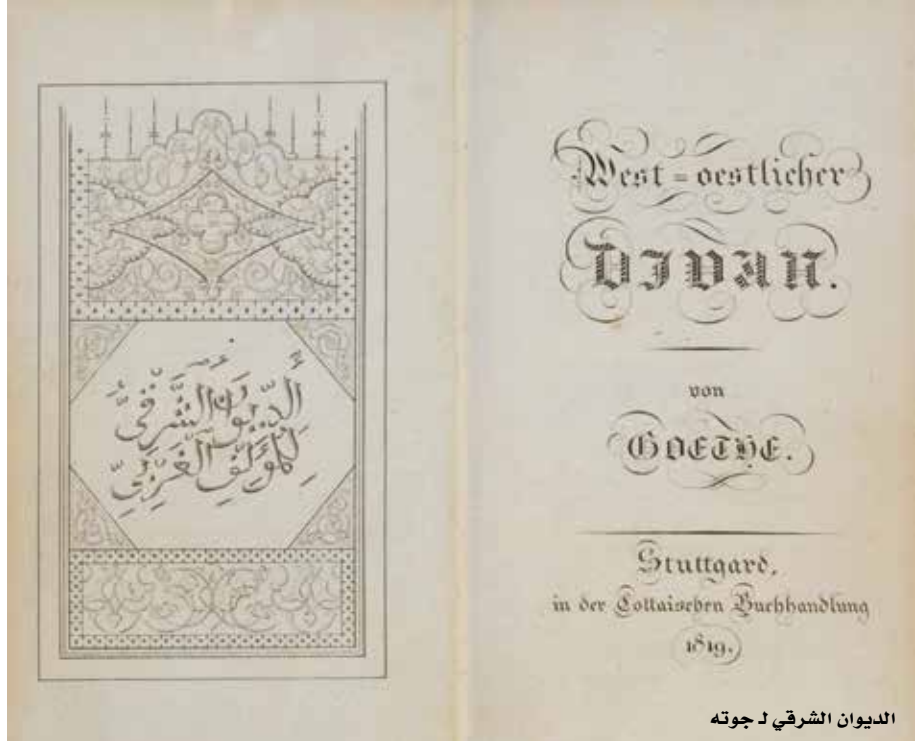 أَلدِّيوَانُ الشَّرْقِيُّ
لِلْمُؤَلِّفِ الْغَرْبِيِّ
West=oestlicher
DIVAN.
von
GOETHE.
Stuttgard,
in der Cottaischen Buchhandlung
1819.
الديوان الشرقي لـ جوته